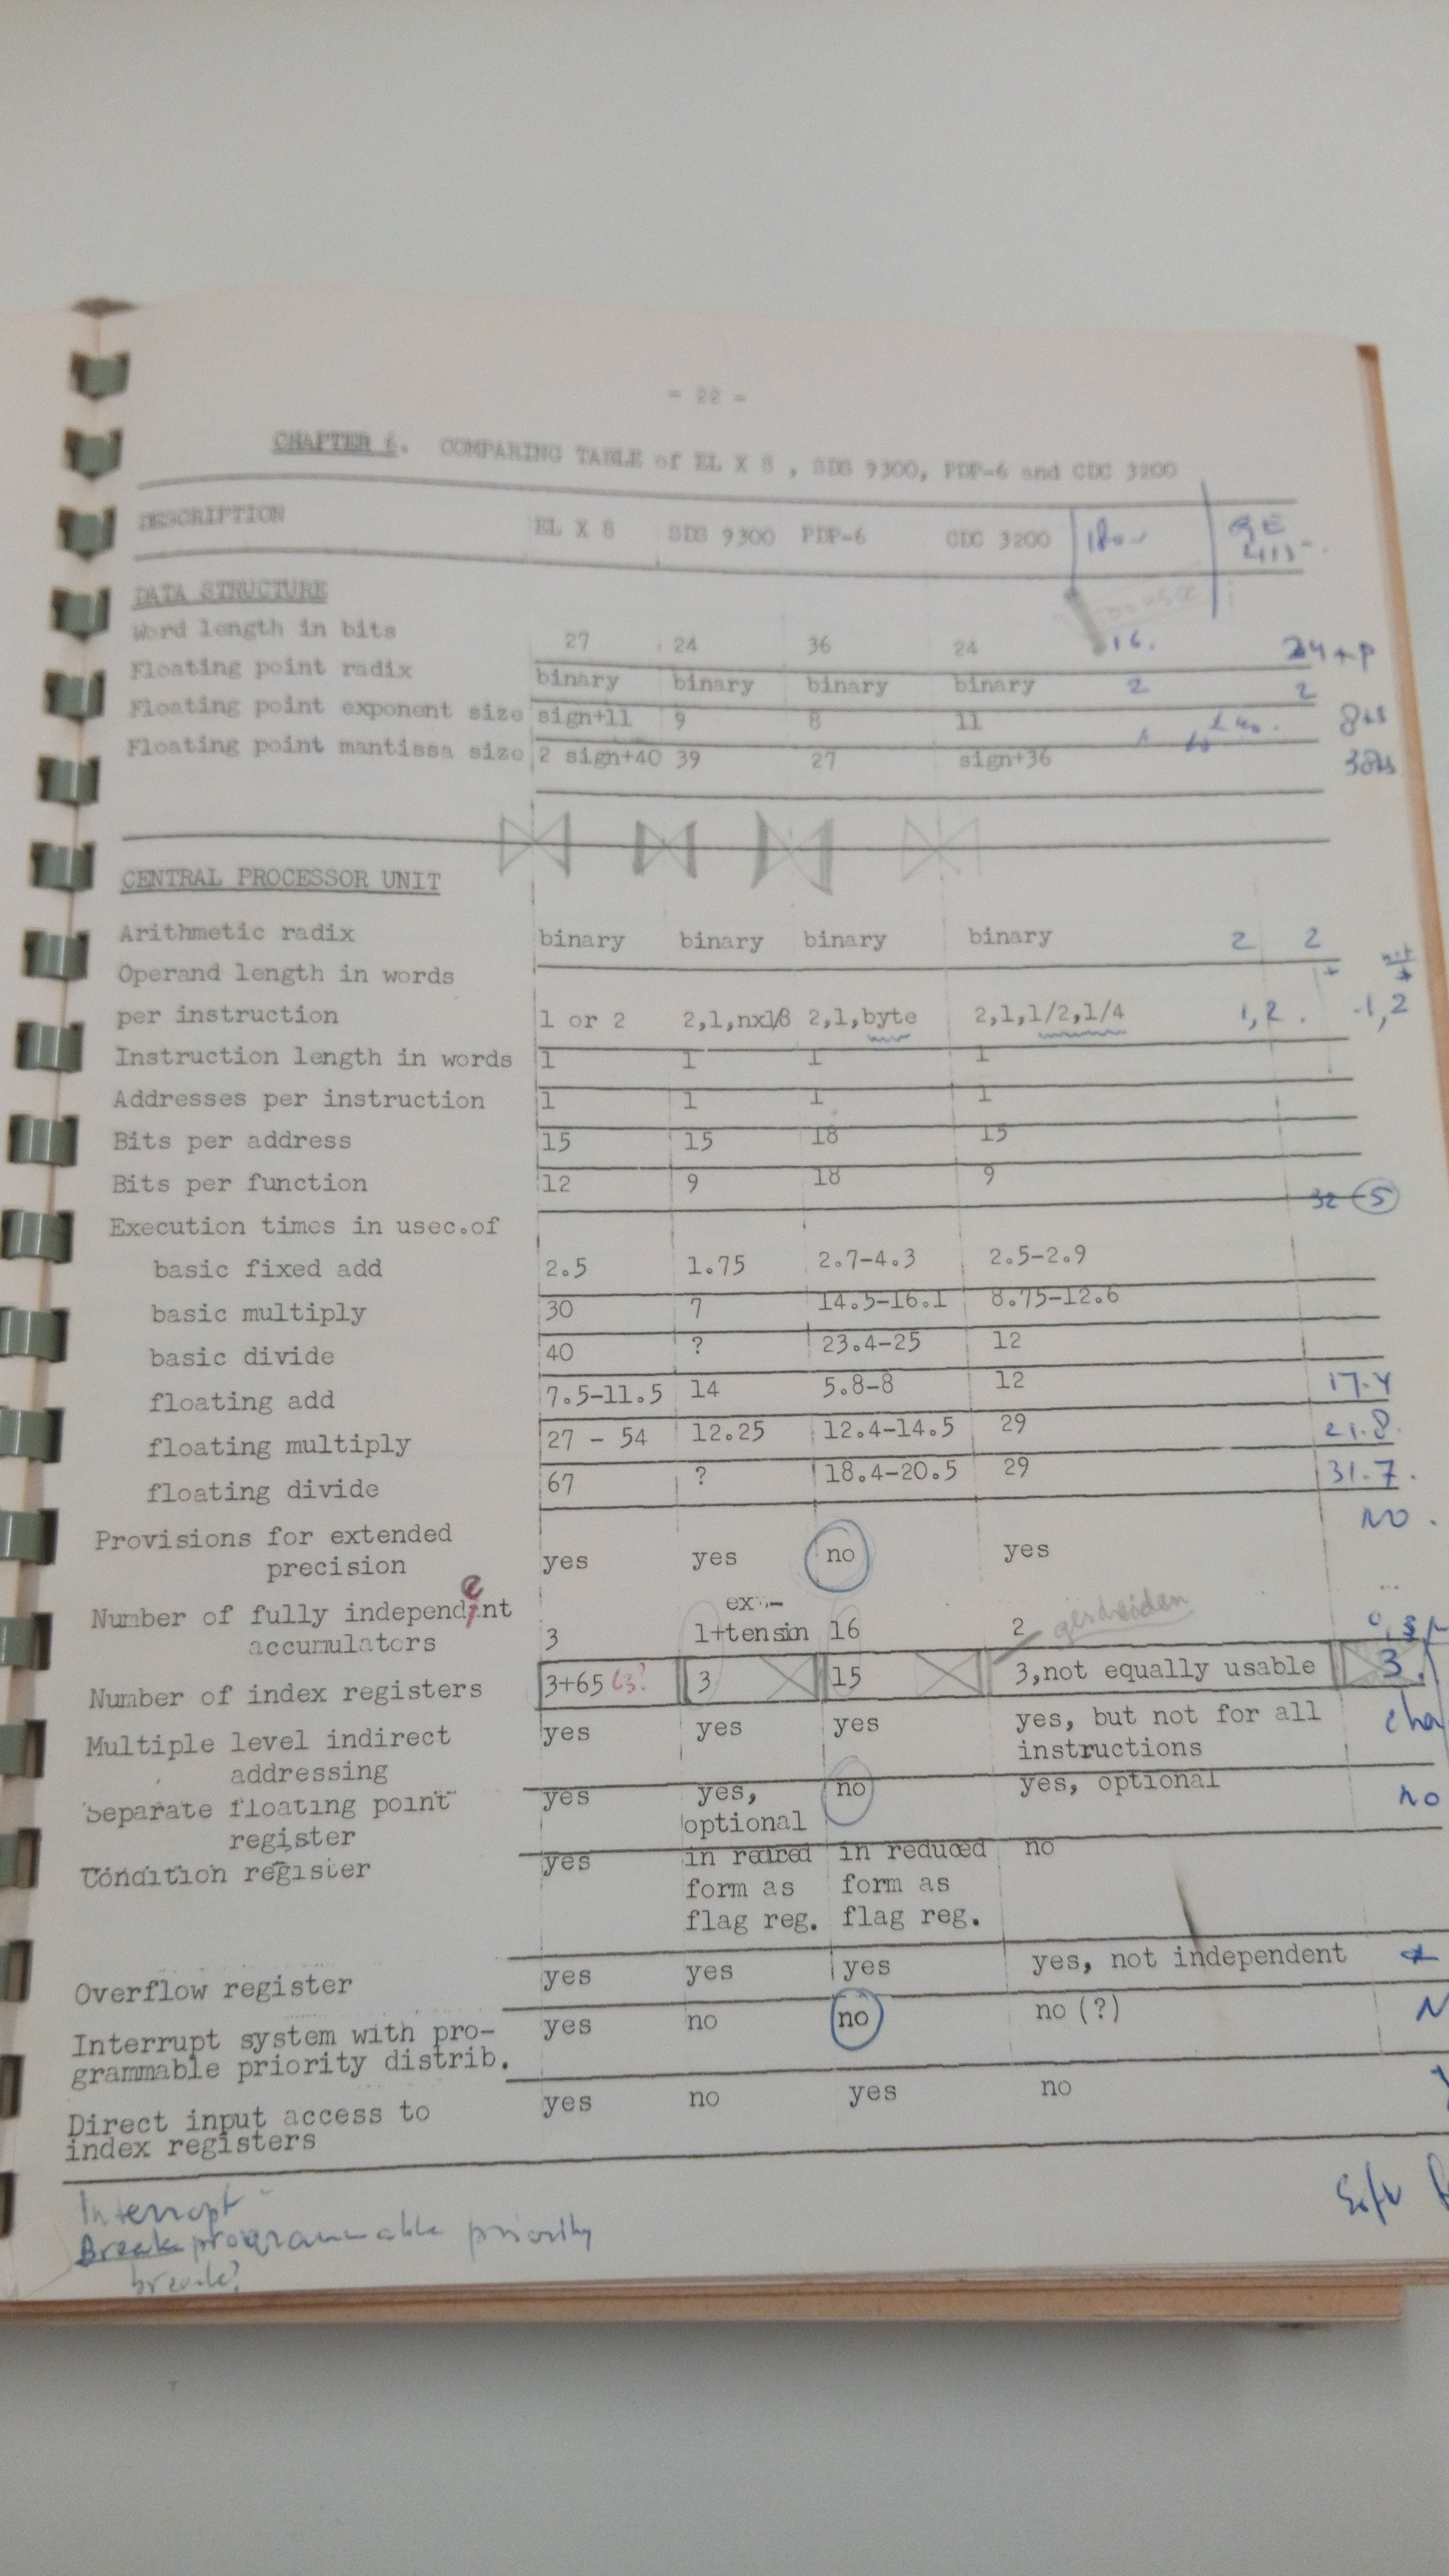 = 22 =
CHAPTER 6. COMPARING TABLE of EL X 8 , SDS 9300, PDP-6 and CDC 3200
DESCRIPTION EL X 8 SDS 9300 PDP-6 CDC 3200 GE
DATA STRUCTURE
Word length in bits 27 24 36 24 16. 24+P
Floating point radix binary binary binary binary 2 2
Floating point exponent size sign+11 9 8 11
Floating point mantissa size 2 sign+40 39 27 sign+36
CENTRAL PROCESSOR UNIT
Arithmetic radix binary binary binary binary 2 2
Operand length in words
per instruction 1 or 2 2,1,nx1/8 2,1,byte 2,1,1/2,1/4 1,2. 1,2
Instruction length in words 1 1 1 1
Addresses per instruction 1 1 1 1
Bits per address 15 15 18 15
Bits per function 12 9 18 9 32 5
Execution times in usec.of
basic fixed add 2.5 1.75 2.7-4.3 2.5-2.9
basic multiply 30 7 14.5-16.1 8.75-12.6
basic divide 40 ? 23.4-25 12
floating add 7.5-11.5 14 5.8-8 12 17.4
floating multiply 27 - 54 12.25 12.4-14.5 29 21.8.
floating divide 67 ? 18.4-20.5 29 31.7.
Provisions for extended no.
precision yes yes no yes
Number of fully independent ex--
accumulators 3 1+tensin 16 2 gescheiden
Number of index registers 3+65 63? 3 15 3,not equally usable 3.
Multiple level indirect yes yes yes yes, but not for all
addressing instructions
Separate floating point yes yes, no yes, optional no
register optional
Condition register yes in redced in reduced no
form as form as
flag reg. flag reg.
Overflow register yes yes yes yes, not independent
Interrupt system with pro- yes no no no (?)
grammable priority distrib.
Direct input access to yes no yes no
index registers
Interrupt
Break programmable priority
break?